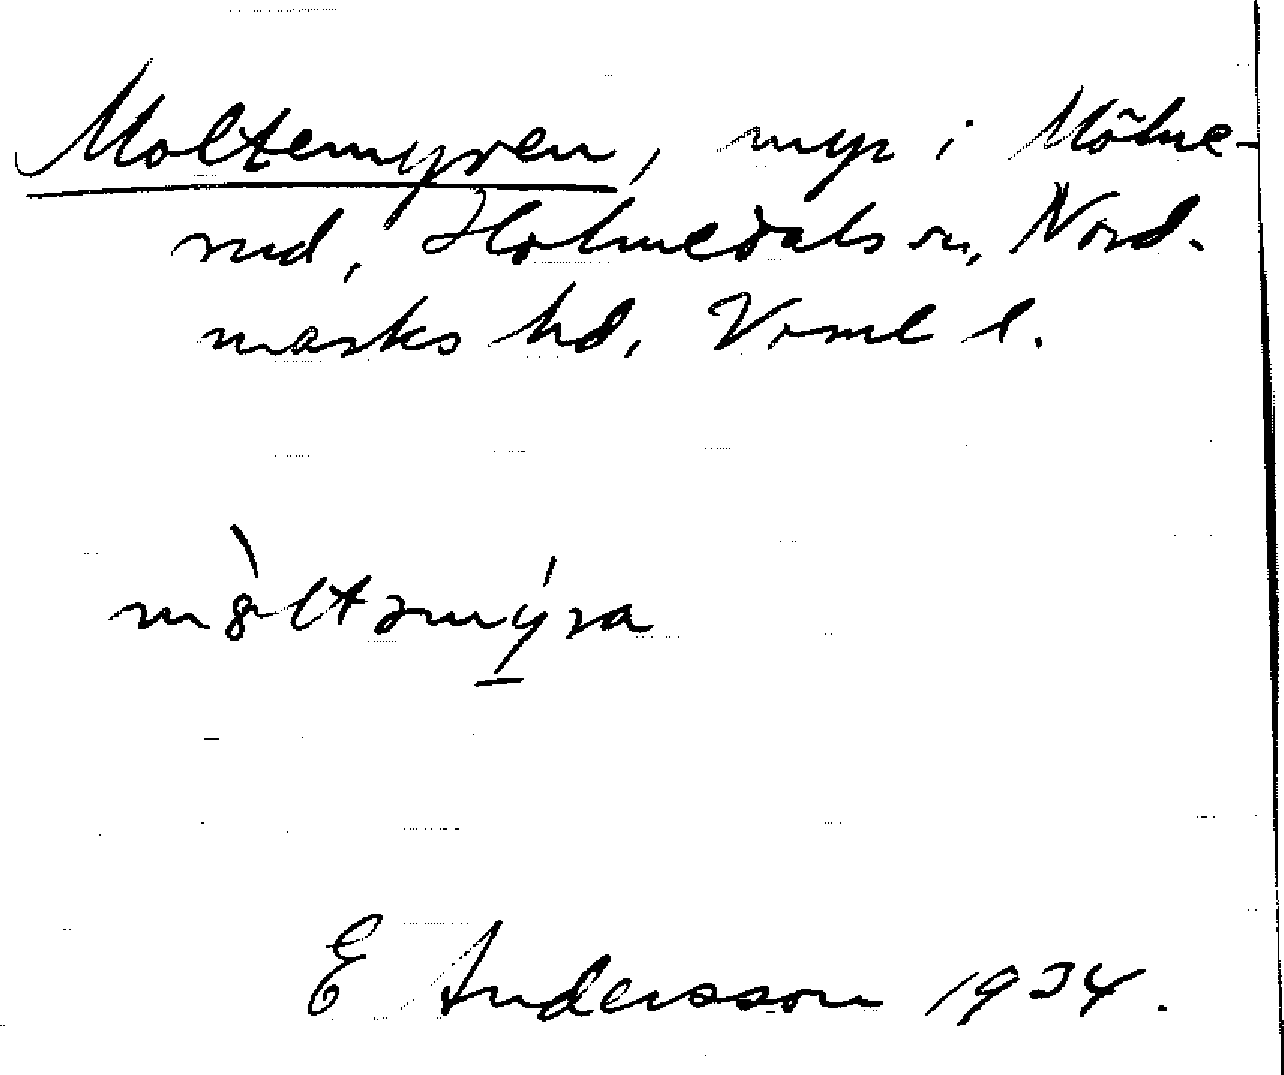 Moltemyren, myr i Mölne-
rud, Holmedals sn, Nord-
marks hd, Vrml l.
mòltəmýra
E Andersson 1934.